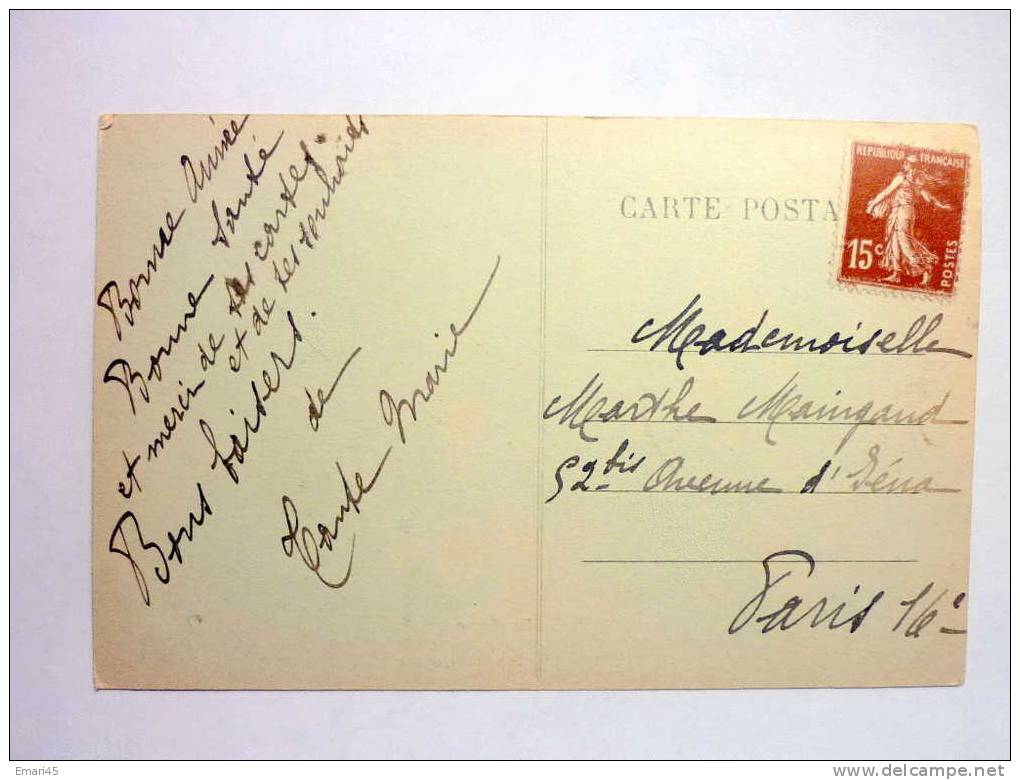 Bonne Année
Bonne Santé
et merci de tes cartes
et de tes souhaits
Bons baisers.
de
Tante Marie
CARTE POSTA
REPUBLIQUE FRANÇAISE
15c
POSTES
Mademoiselle
Marthe Maingaud
52 bis Avenue d'Iéna
Paris 16e
Emari45
www.delcampe.net